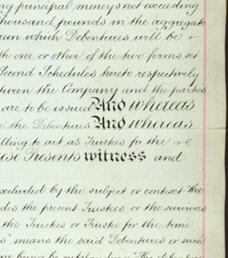 ng principal moneys not exceeding
thousand pounds in the aggregate
rum which Debentures will be
th one or other of the two forms set
Second Schedules hereto respectively
tween the Company and the parties
are to be issued And whereas
the Debentures And whereas
lling to act as Trustees for the
these Presents witness and
excluded by the subject or context the
des the present Trustees or the survivors
the Trustees or Trustee for the time
s" means the said Debentures or such